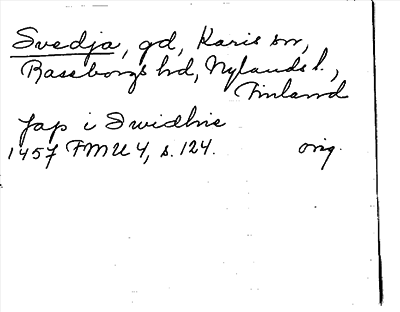 Svedja, gd, Karis sn,
Raseborgs hd, Nylands l.,
Finland
Jap i Swidhie
1457 FMU 4, s. 124. orig.